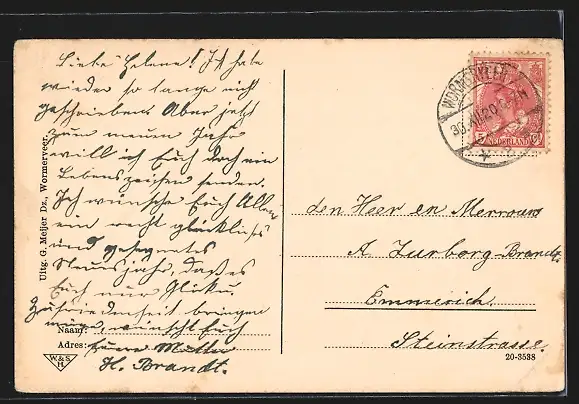 Liebe Helene! Ich habe
wieder so lange nicht
geschrieben. Aber jetzt
zum neuen Jahr
will ich Euch doch ein
Lebenszeichen senden.
Ich wünsche Euch Allen
ein recht glückliches
und gesegnetes
Neues Jahr, daß es
Euch nur Glück u.
Zufriedenheit bringen
möge, wünscht Euch
Eure Mutter
H. Brandt.
Naam:
Adres:
W.&S.
H
Uitg. G. Meijer Dz., Wormerveer.
WORMERVEER
30.XII.20
NEDERLAND
den Heer en Mevrouw
A. Zurborg-Brandt
Emmerich.
Steinstrasse.
20-3538